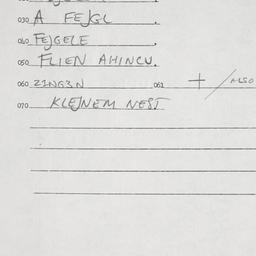 030 A FEJGL.
040 FEJGELE.
050 FLIEN AHINCU.
060 ZINGZN 061 + / ALSO
070 KLEJNEM NEST